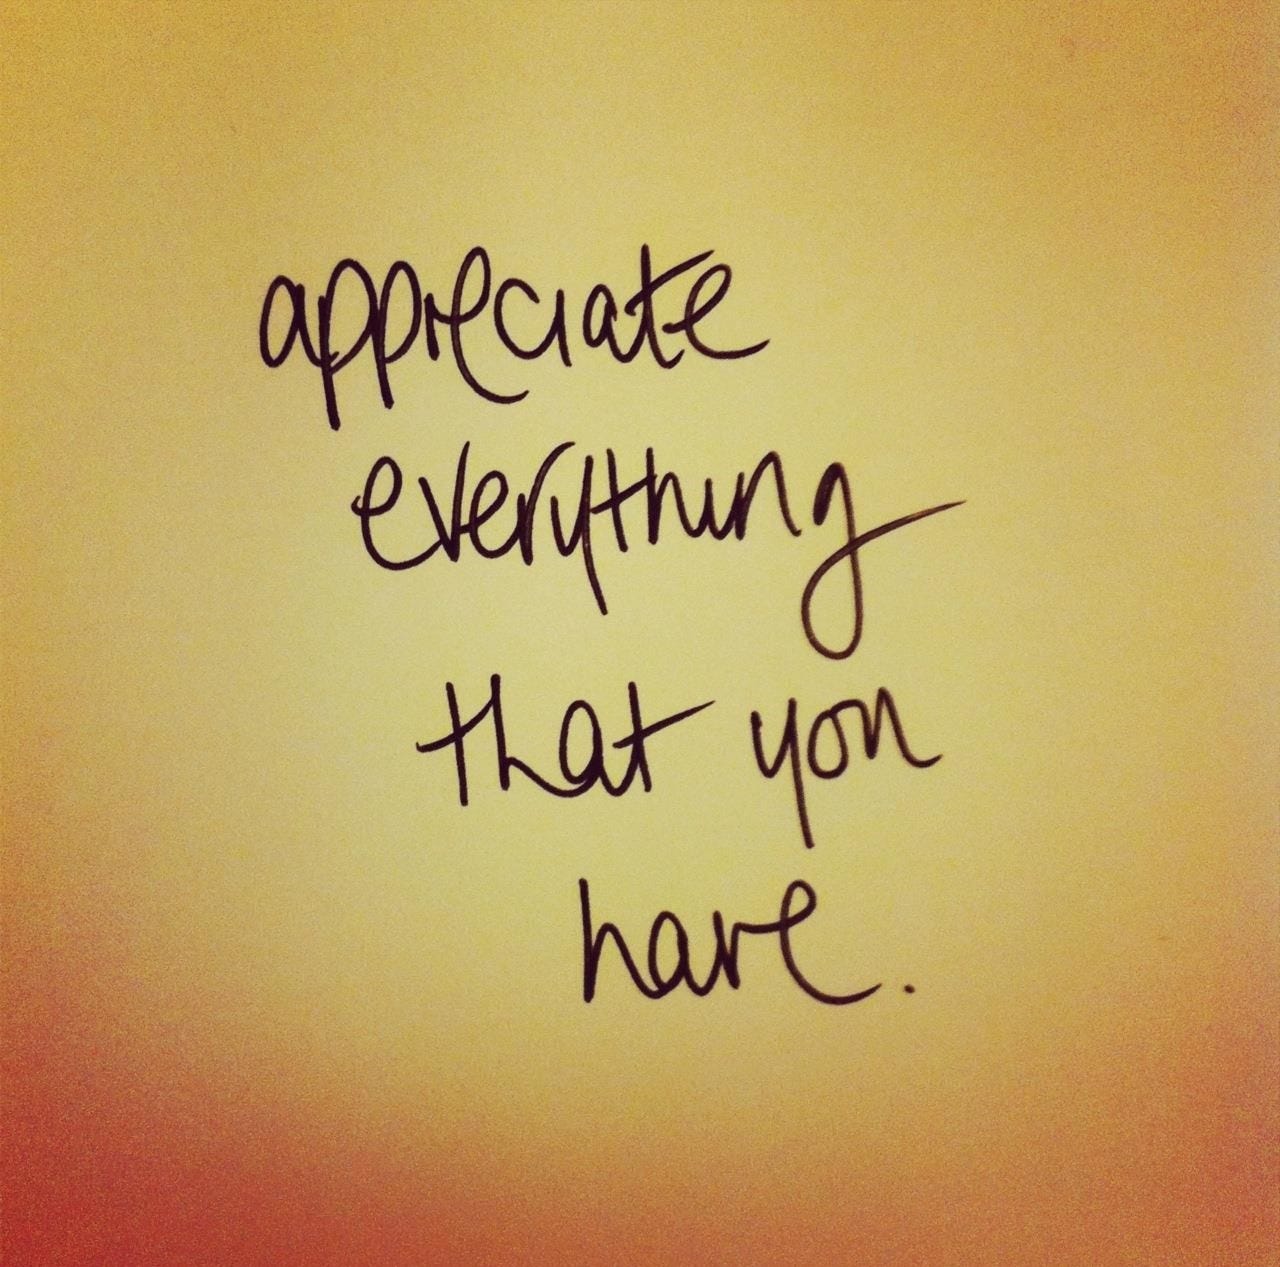 appreciate
everything
that you
have.